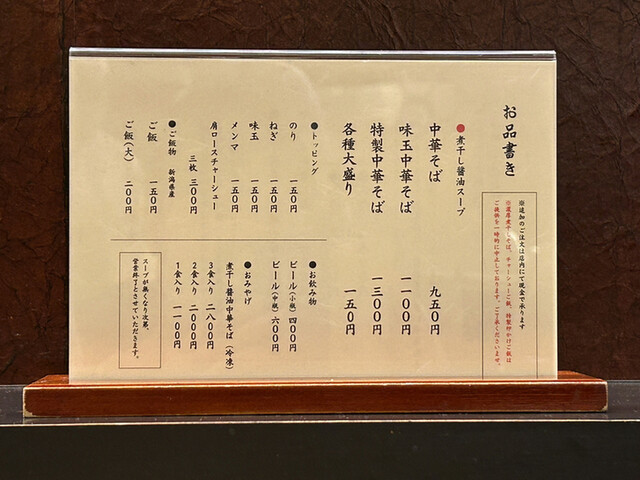 お品書き
※追加のご注文は店内にて現金で承ります
※濃厚煮干しそば、チャーシューご飯、特製卵かけご飯は
ご提供を一時的に中止しております。ご了承くださいませ。
●煮干し醤油スープ
中華そば 九五〇円
味玉中華そば 一一〇〇円
特製中華そば 一三〇〇円
各種大盛り 一五〇円
●トッピング
のり 一五〇円
ねぎ 一五〇円
味玉 一五〇円
メンマ 一五〇円
肩ロースチャーシュー
三枚 三〇〇円
●ご飯物 新潟県産
ご飯 一五〇円
ご飯(大) 二〇〇円
●お飲み物
ビール(小瓶)四〇〇円
ビール(中瓶)六〇〇円
●おみやげ
煮干し醤油中華そば(冷凍)
3食入り 二八〇〇円
2食入り 二〇〇〇円
1食入り 一一〇〇円
スープが無くなり次第、
営業終了とさせていただきます。